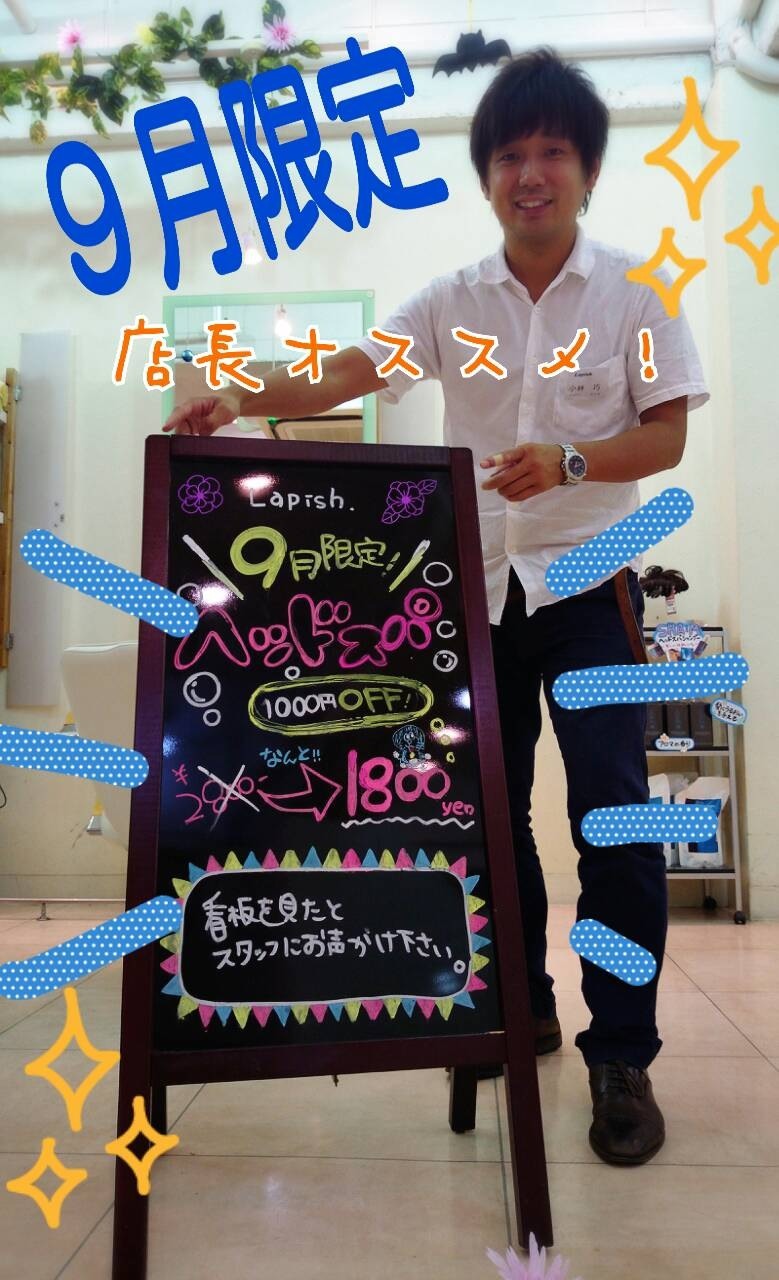 9月限定
店長オススメ！
Lapish.
小林 巧
Lapish.
9月限定!!
ヘッドスパ
1000円OFF!
なんと!!
1800
yen
看板を見たと
スタッフにお声がけ下さい。